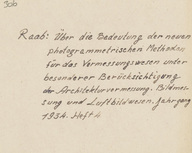 906
Raab: Über die Bedeutung der neuen
photogrammetrischen Methoden
für das Vermessungswesen unter
besonderer Berücksichtigung
der Architekturvermessung. Bildmes-
sung und Luftbildwesen, Jahrgang
1934. Heft 4